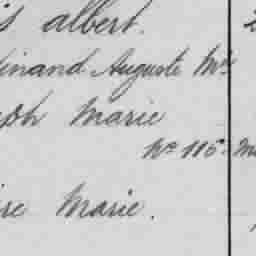 is albert.
inand Auguste M
eph Marie
No 115.
ire Marie.